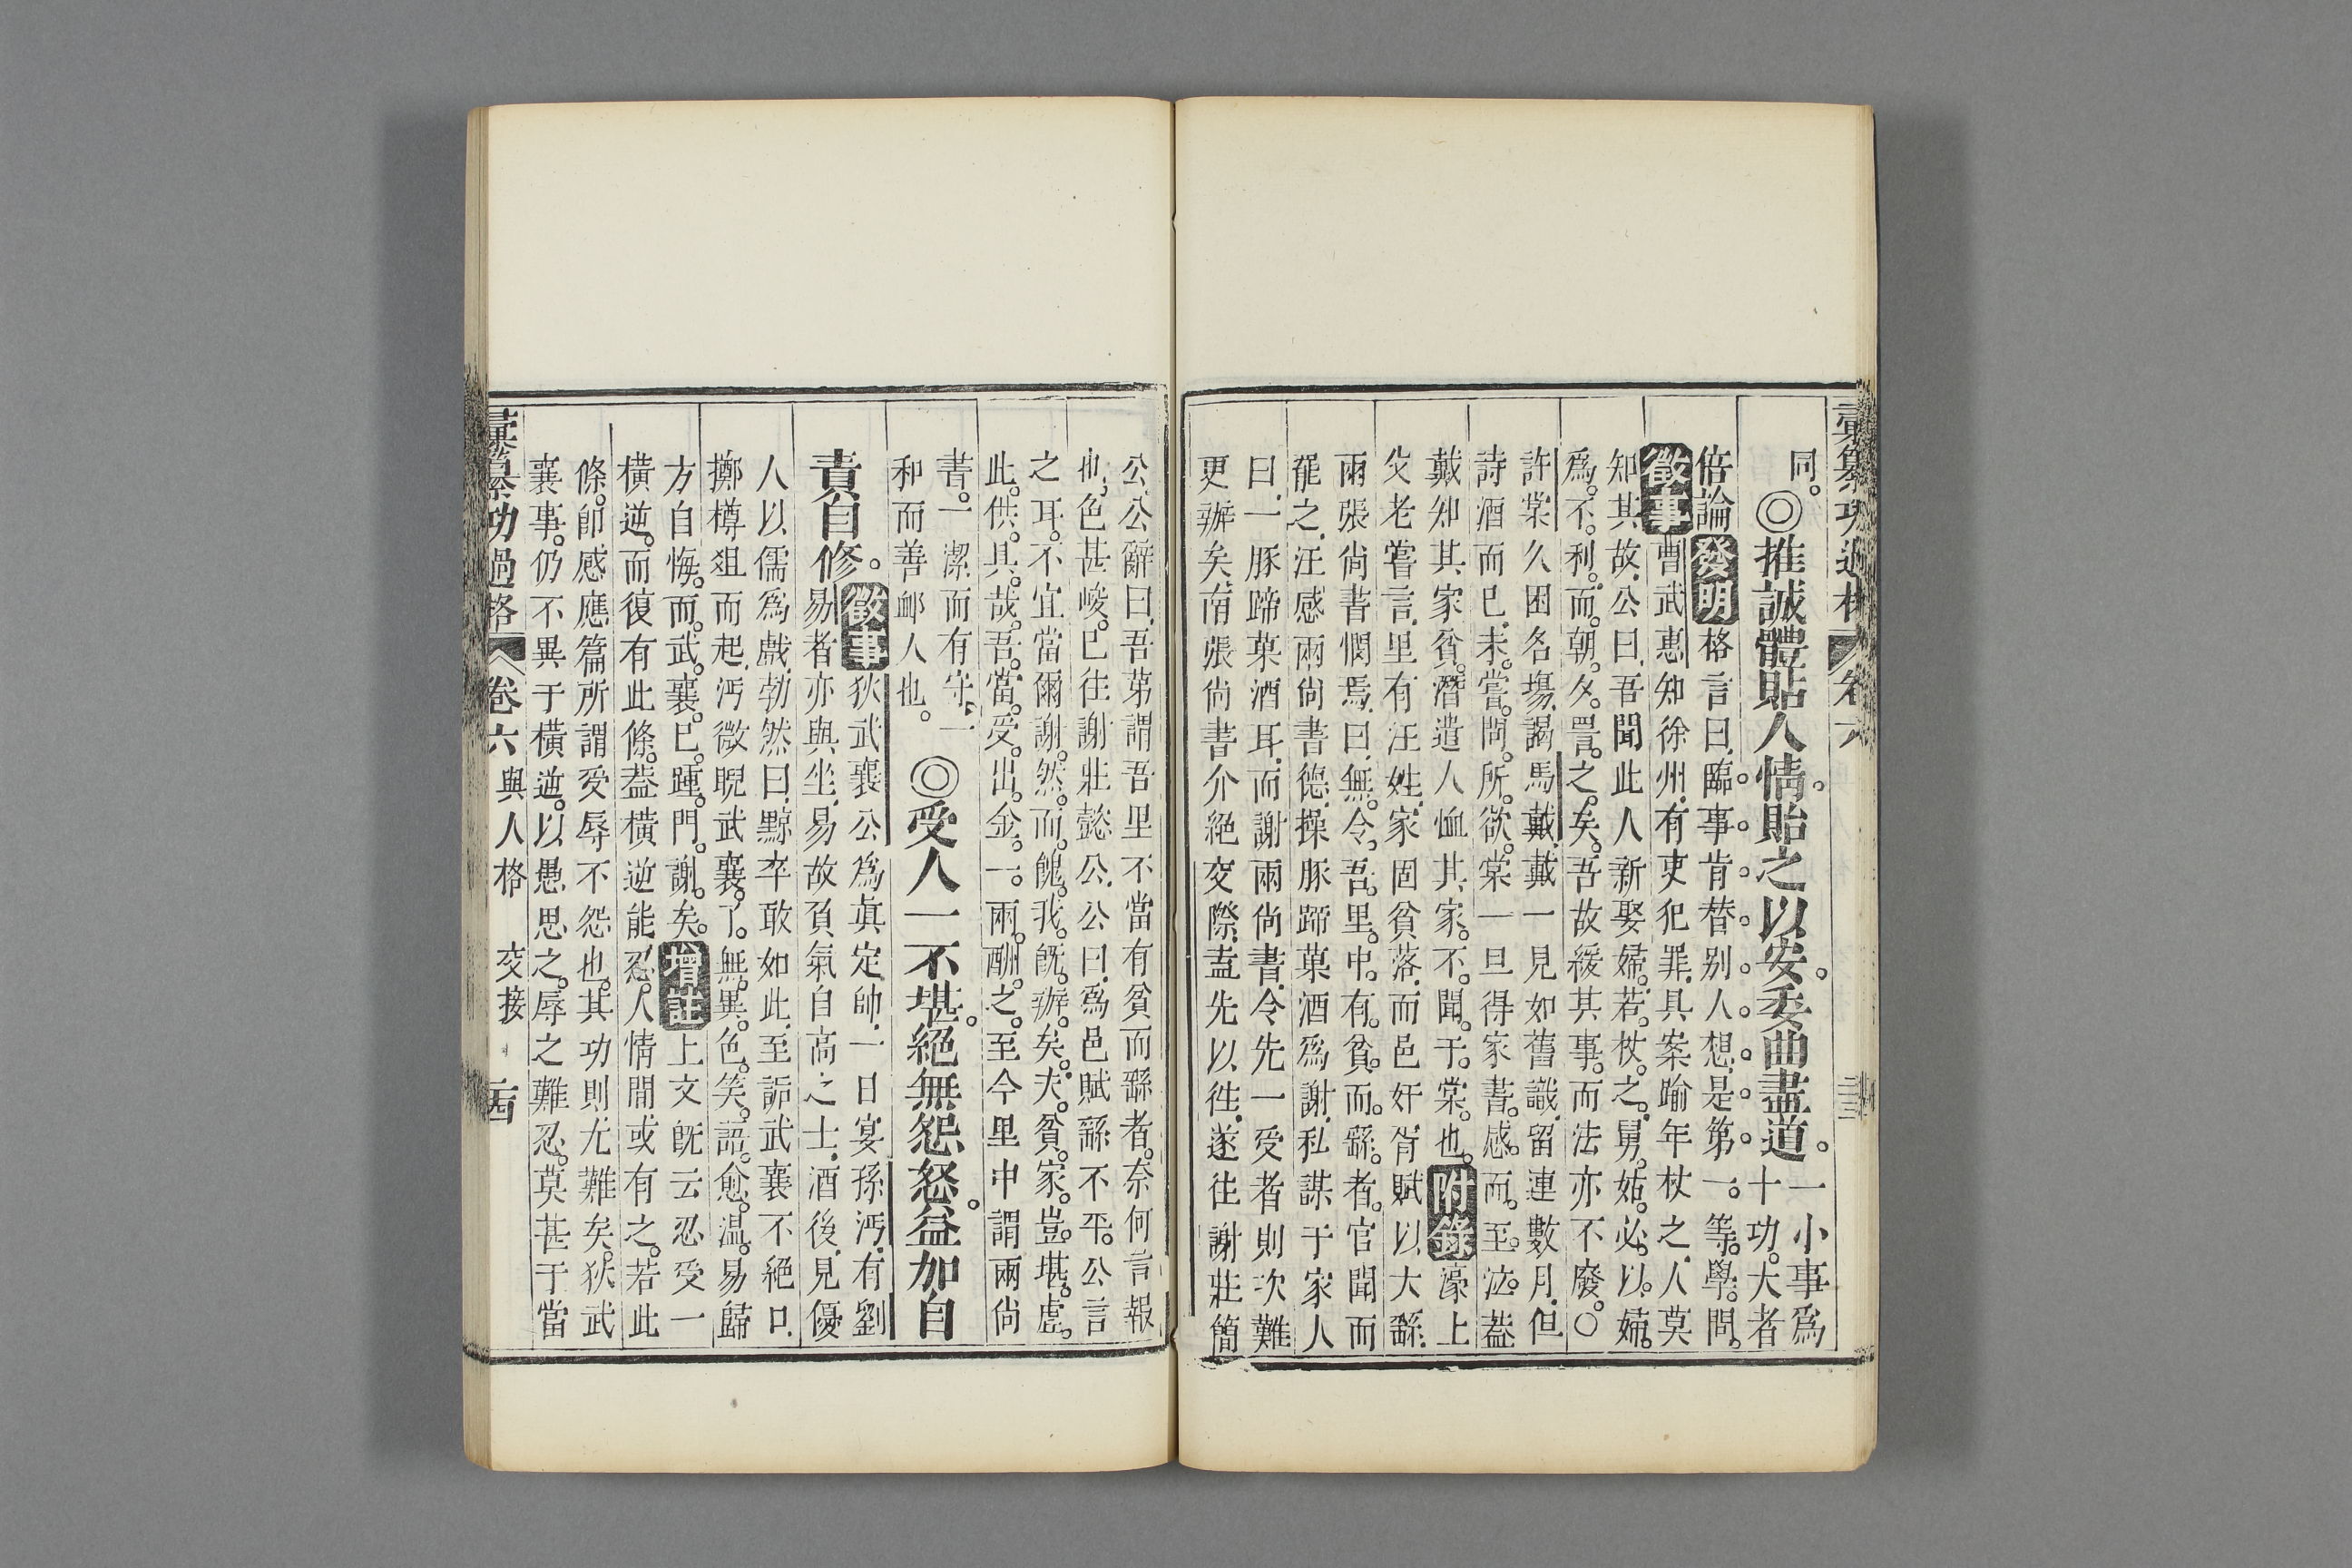 彙纂功過格
卷六
同。◎推誠體貼人情。貽之以安。委曲盡道。一小事爲
十功。大者
倍論發明格言曰、臨事肯替别人想、是第一等學問。
徵事曹武惠知徐州、有吏犯罪、具案踰年杖之、人莫
知其故、公曰、吾聞此人新娶婦。若杖之、舅姑必以婦
爲不利。而朝夕詈之矣。吾故緩其事。而法亦不廢。○
許棠久困名塲、謁馬戴、戴一見如舊識、留連數月、但
詩酒而已、未嘗問所欲。棠一旦得家書。感而至泣。葢
戴知其家貧。潛遣人恤其家。不聞于棠也。附錄濠上
父老嘗言、里有汪姓、家固貧落、而邑奸胥賦以大繇、
兩張尙書憫焉、曰、無令吾里中有貧而繇者。官聞而
罷之、汪感兩尙書德、操豚蹄菓酒爲謝、私謀于家人
曰、一豚蹄菓酒耳、而謝兩尙書、令先一受者則次難
更辦矣、南張尙書介絕交際、盍先以往、遂往謝莊簡
公、公辭曰、吾苐謂吾里不當有貧而繇者。奈何言報
也、色甚峻。已往謝莊懿公、公曰、爲邑賦繇不平。公言
之耳。不宜當爾謝。然而餽我。旣辦矣。夫貧家。豈堪虛
此供具哉。吾當受。出金一兩酬之。至今里中謂兩尙
書。一潔而有守、一
和而善卹人也。◎受人一不堪。絕無怨怒。益加自
責自修。徵事狄武襄公爲眞定帥、一日宴孫沔、有劉
易者亦與坐、易故負氣自高之士、酒後、見優
人以儒爲戲、勃然曰、黥卒敢如此、至詬武襄不絕口、
擲樽俎而起、沔微睨武襄。了無異色。笑語愈温。易歸
方自悔。而武襄已踵門謝矣。增註上文旣云忍受一
橫逆。而復有此條。葢橫逆能忍。人情間或有之。若此
條。卽感應篇所謂受辱不怨也。其功則尤難矣。狄武
襄事。仍不異于橫逆。以愚思之。辱之難忍。莫甚于當
彙纂功過格
卷六
與人格
交接